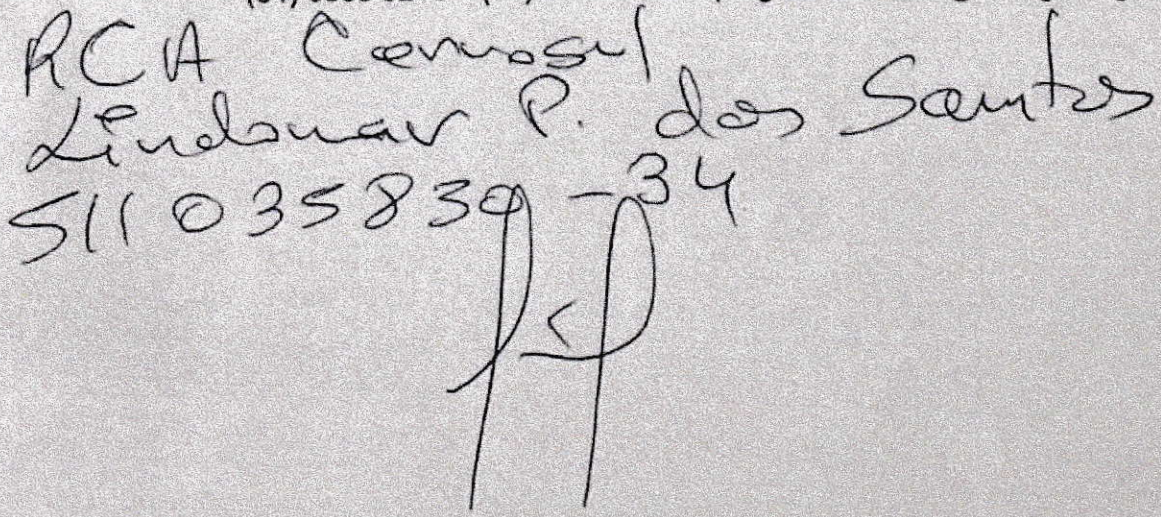 RCA Cermosul
Lindomar P. dos Santos
511035830-34